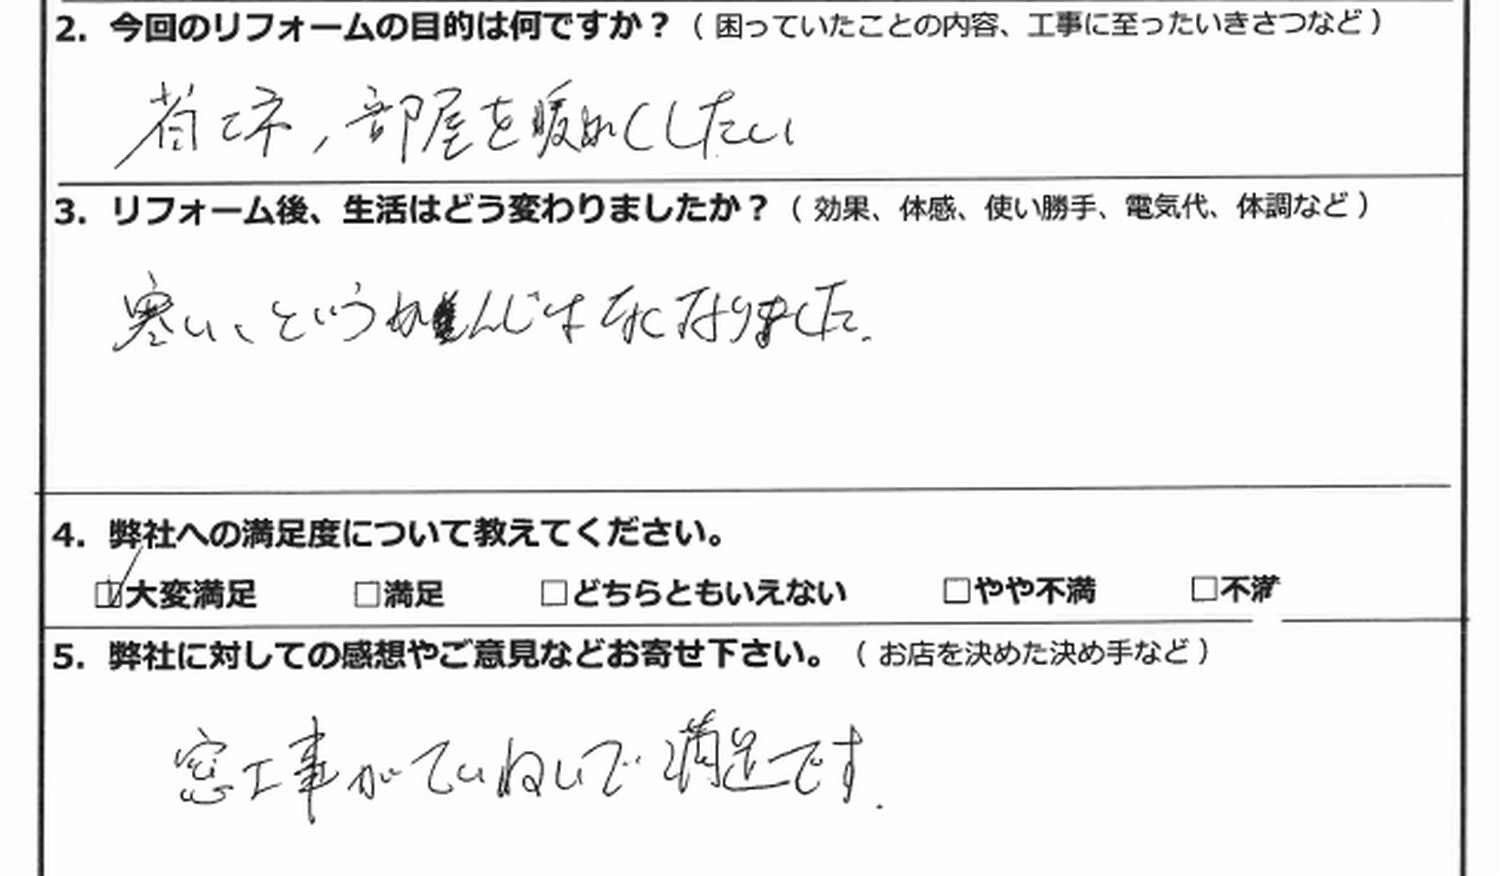 2. 今回のリフォームの目的は何ですか？（困っていたことの内容、工事に至ったいきさつなど）
省エネ，部屋を暖かくしたい
3. リフォーム後、生活はどう変わりましたか？（効果、体感、使い勝手、電気代、体調など）
寒い、というかんじはなくなりました.
4. 弊社への満足度について教えてください。
☑大変満足 □満足 □どちらともいえない □やや不満 □不満
5. 弊社に対しての感想やご意見などお寄せ下さい。（お店を決めた決め手など）
窓工事がていねいで満足です.